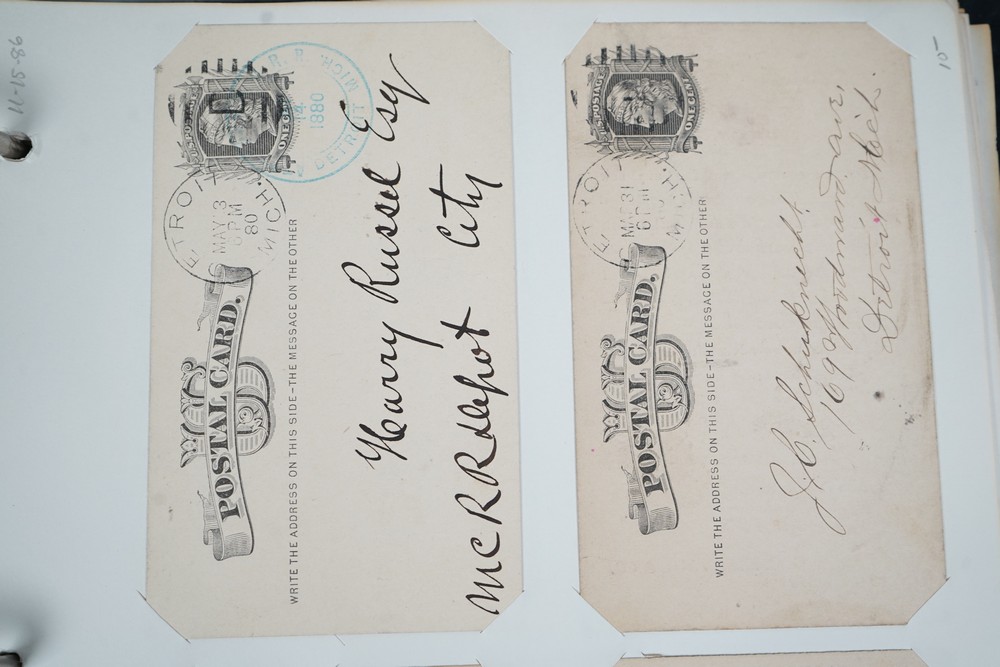 11-15-86
U.S. POSTAGE
ONE CENT
R. R.
MICH.
1880
DETROIT
DETROIT
MAY 3
6 PM
80
MICH.
US
POSTAL CARD.
WRITE THE ADDRESS ON THIS SIDE-THE MESSAGE ON THE OTHER
Harry Russel Esq
MCRR depot City
15
U.S. POSTAGE
ONE CENT
DETROIT
31
6 PM
MICH.
US
POSTAL CARD.
WRITE THE ADDRESS ON THIS SIDE-THE MESSAGE ON THE OTHER
J. C. Schuknecht
169 Woodward ave,
Detroit Mich.